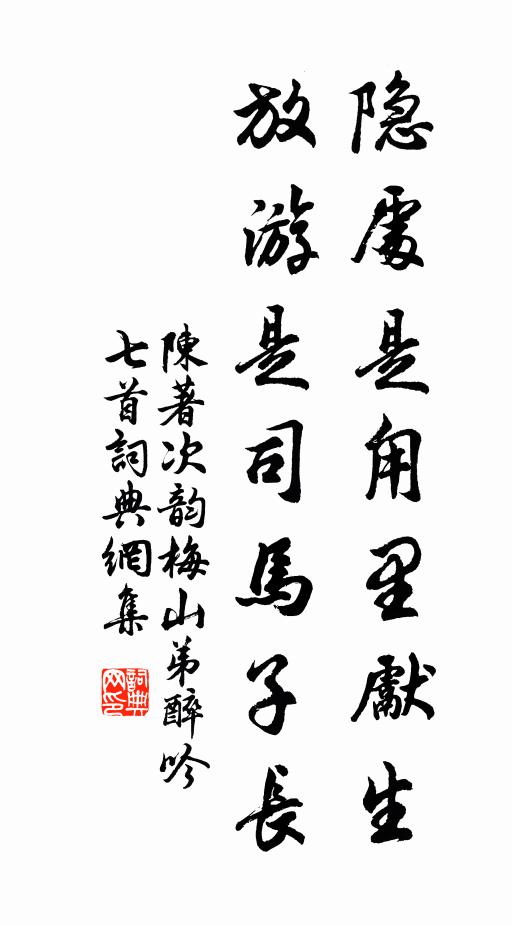 隐處是甪里獻生
放游是司馬子長
陳著次韵梅山弟醉吟
七首詞典網集
詞典网印